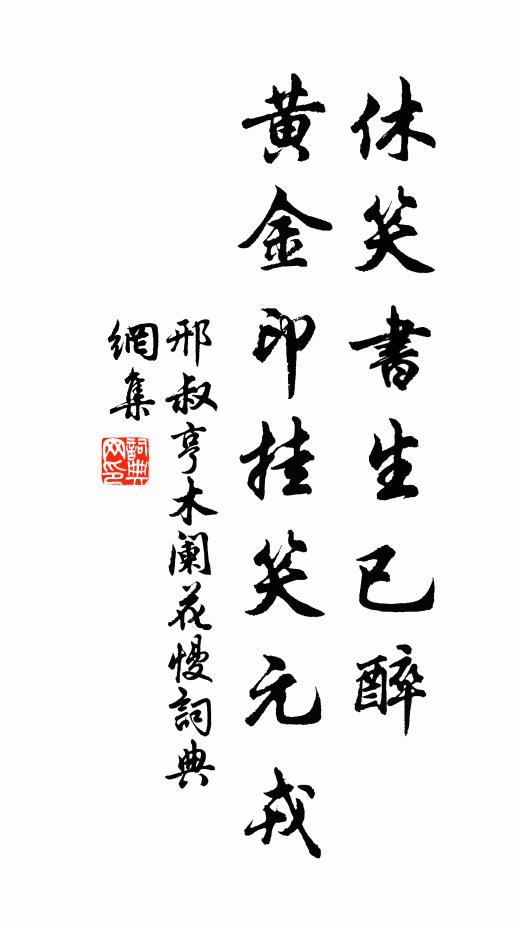 休笑書生已醉
黃金印挂笑元戎
邢叔亨木闌花慢詞典
網集
詞典
网印